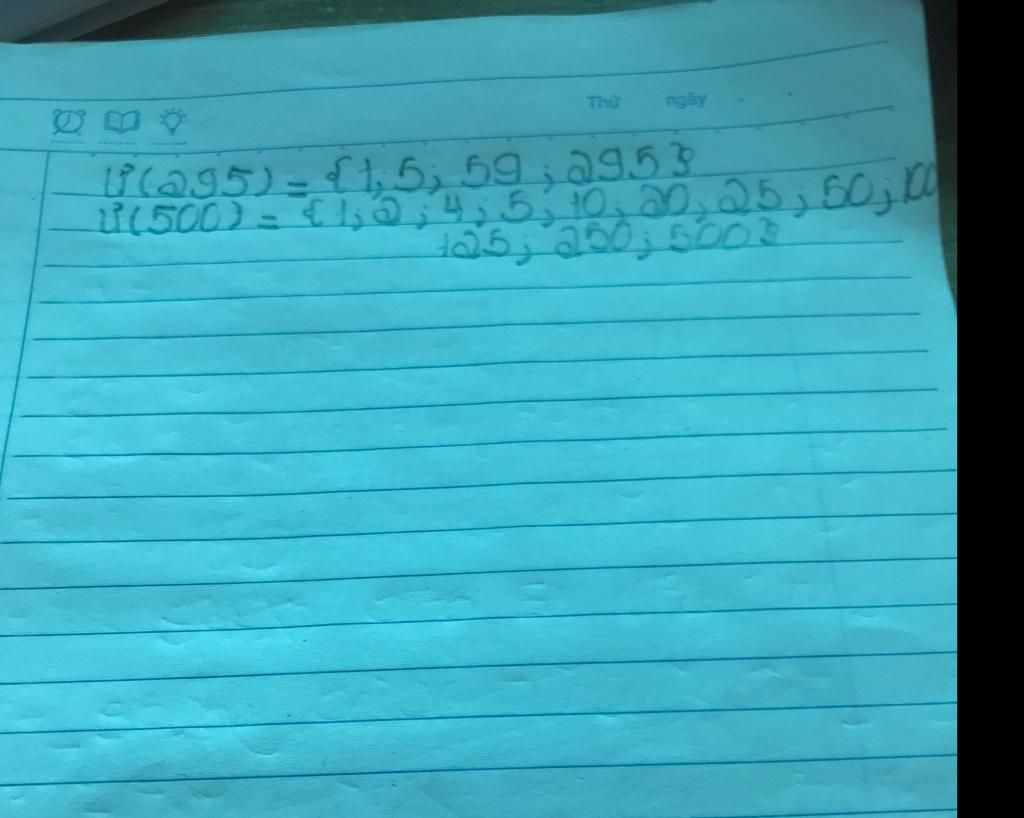 Thứ ngày
Ư(295) = {1; 5; 59; 295}
Ư(500) = {1; 2; 4; 5; 10; 20; 25; 50; 100
125; 250; 500}